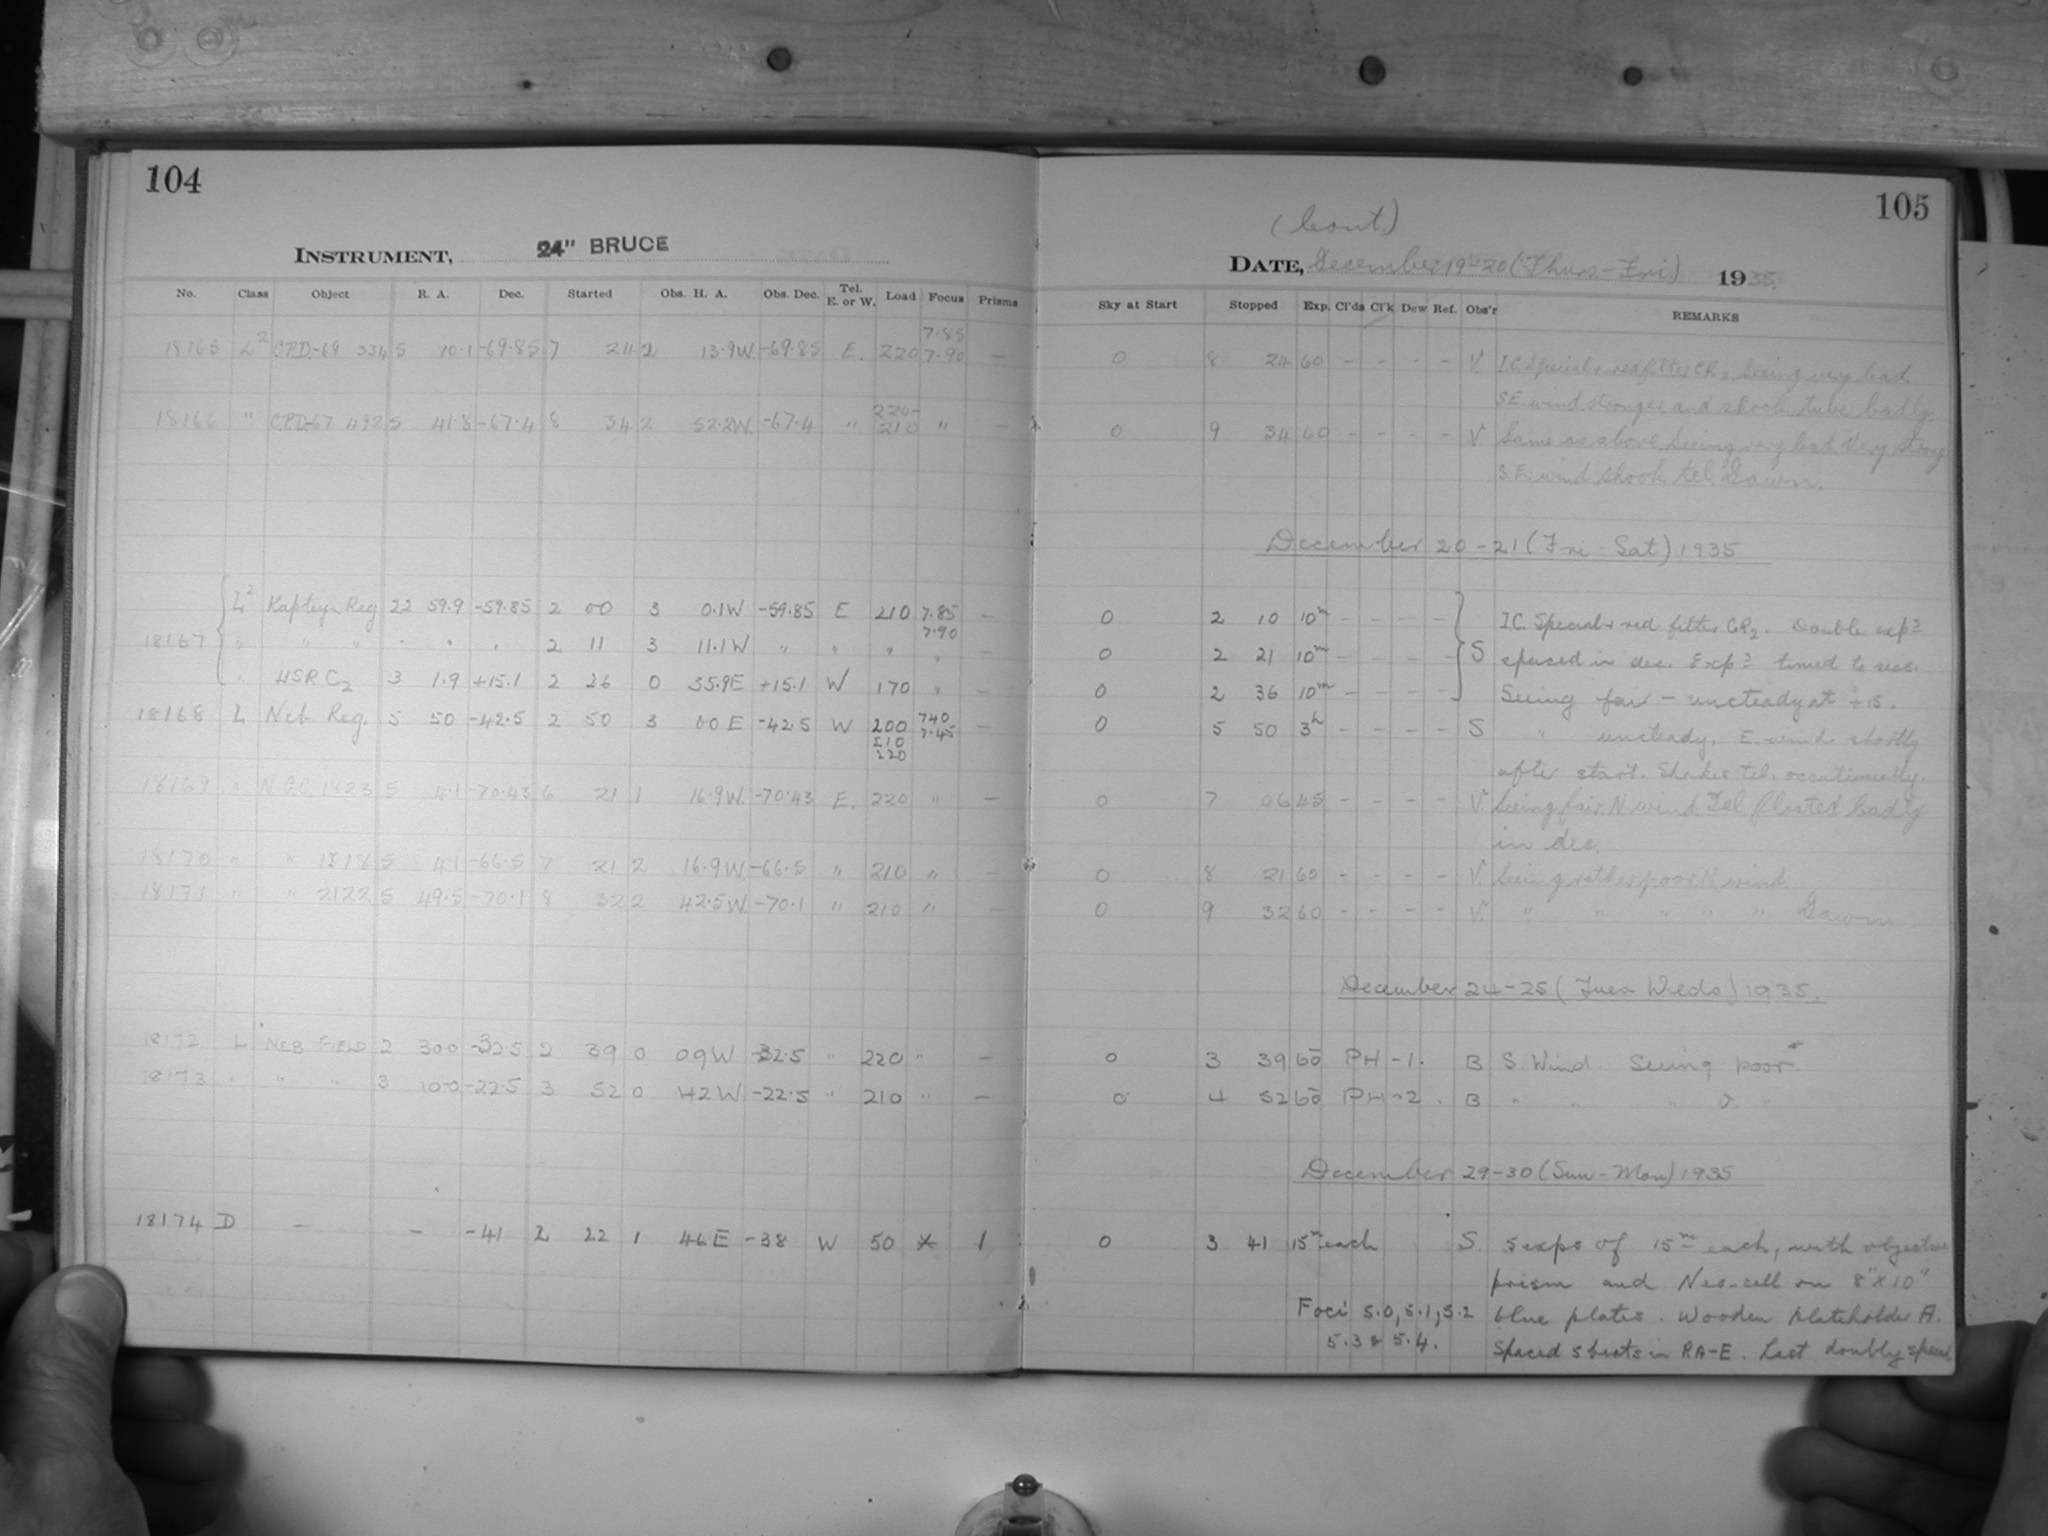 104
INSTRUMENT, 24" BRUCE
No. Class Object R. A. Dec. Started Obs. H. A. Obs. Dec. Tel. E. or W. Load Focus Prisms
7.85
18165 L2 CPD-69 334 5 10.1 -69.85 7 24 2 13.9W -69.85 E. 220 7.90 —
220-
18166 " CPD-67 492 5 41.8 -67.4 8 34 2 52.2W -67.4 " 210 " —
L2 Kapteyn Reg 22 59.9 -59.85 2 00 3 0.1W -59.85 E 210 7.85 —
7.90
18167 " " " " " " 2 11 3 11.1W " " " " —
" HSR C2 3 1.9 +15.1 2 26 0 35.9E +15.1 W 170 " —
18168 L Neb. Reg. 5 50 -42.5 2 50 3 00E -42.5 W 200 7.40 —
210 7.45
220
18169 " N.G.C. 1823 5 4.1 -70.43 6 21 1 16.9W -70.43 E. 220 " —
18170 " " 1818 5 4.1 -66.5 7 21 2 16.9W -66.5 " 210 " —
18171 " " 2122 5 49.5 -70.1 8 32 2 42.5W -70.1 " 210 " —
18172 L NEB FIELD 2 30.0 -32.5 2 39 0 09W -32.5 " 220 " —
18173 " " " 3 10.0 -22.5 3 52 0 42W -22.5 " 210 " —
18174 D — — -41 2 22 1 46E -38 W 50 * 1
105
(Cont.)
DATE, December 19-20 (Thurs.-Fri) 1935.
Sky at Start Stopped Exp. Cl'ds Cl'k Dew Ref. Obs'r REMARKS
0 8 24 60 - - - - V. I.C. Special + red filter CR2. Seeing very bad.
S.E. wind stronger and shook tube badly.
0 9 34 60 - - - - V Same as above. Seeing very bad. Very strong
S.E. wind shook tel. Dawn.
December 20-21 (Fri-Sat) 1935
0 2 10 10m - - - - I.C. Special + red filter CR2. Double expd
0 2 21 10m - - - - S spaced in dec. Expd timed to secs.
0 2 36 10m - - - - Seeing fair - unsteady at +15.
0 5 50 3h - - - - S " unsteady. E. wind shortly
after start. Shakes tel. occationally.
0 7 06 45 - - - - V. Seeing fair. N wind. Tel floated badly
in dec.
0 8 21 60 - - - - V. Seeing rather poor. N wind.
0 9 32 60 - - - - V. " " " " " Dawn
December 24-25 (Tues Weds) 1935.
0 3 39 60 PH -1. B S. Wind. Seeing poor
0 4 52 60 PH -2. B " " "
December 29-30 (Sun-Mon) 1935
0 3 41 15m each S. 5 exps of 15m each, with objective
prism and Neo-cell on 8"x10"
Foci 5.0, 5.1, 5.2 blue plates. Wooden plateholder A.
5.3 & 5.4. Spaced 5 beats in RA-E. Last doubly spaced